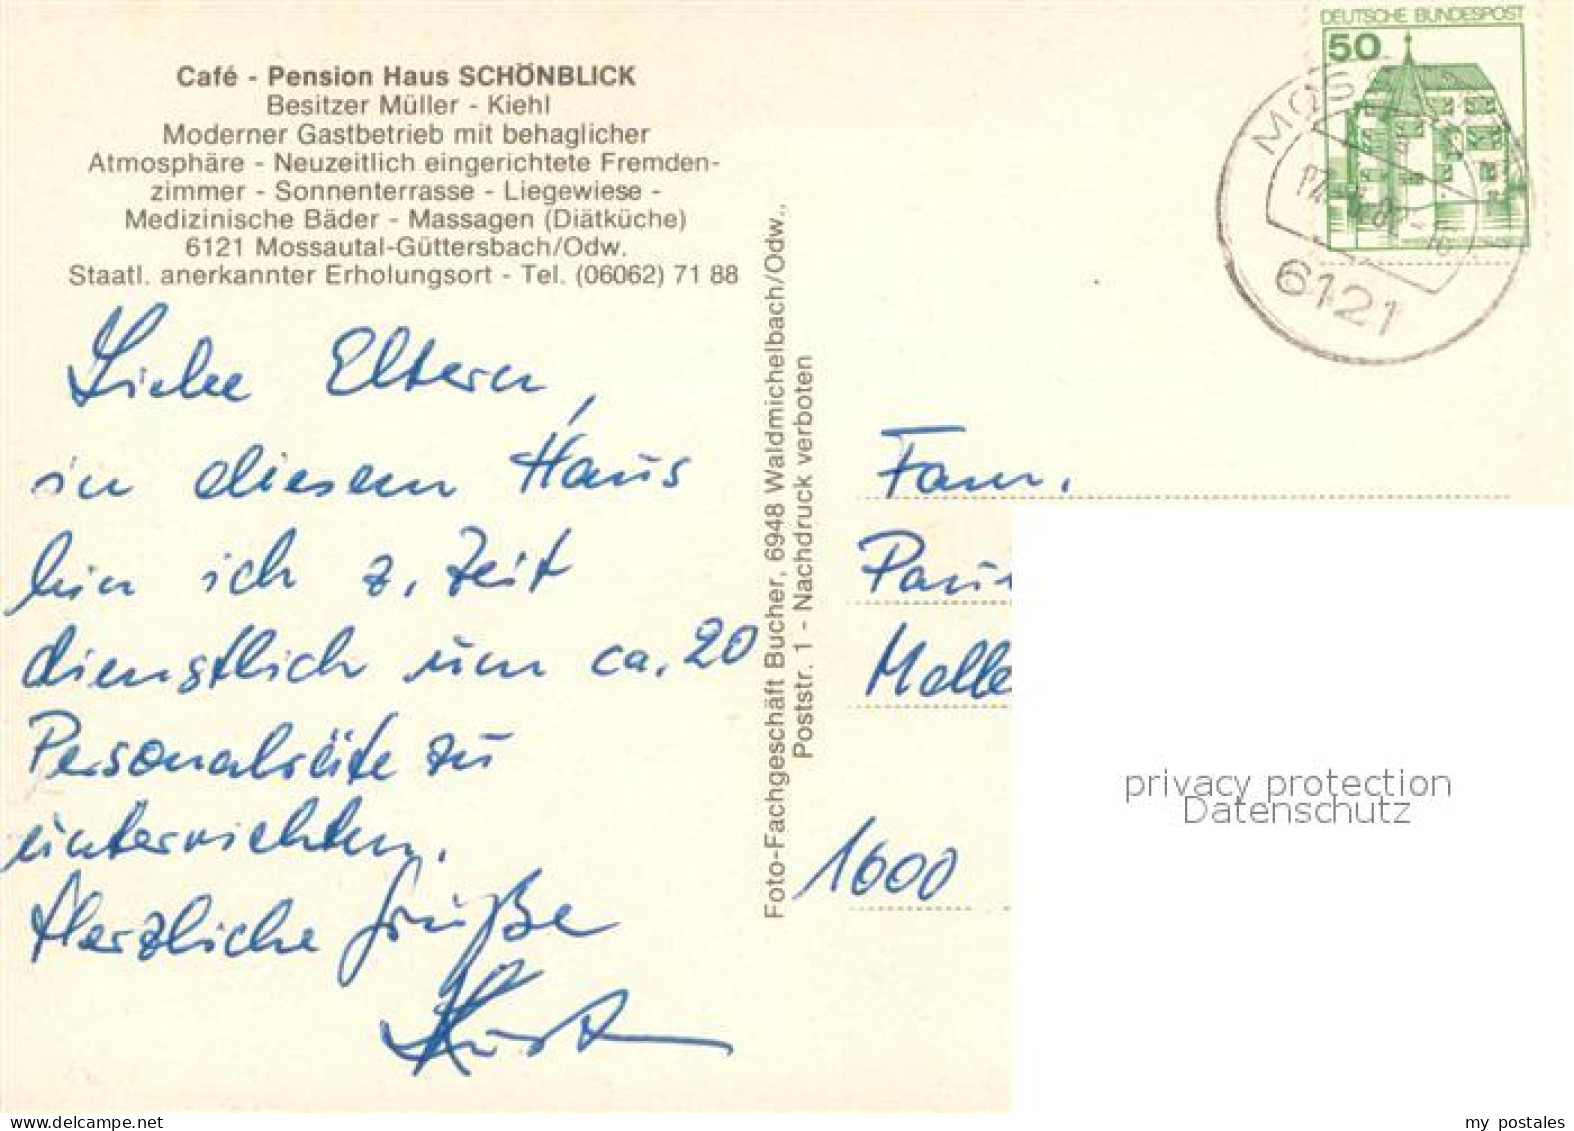 Café - Pension Haus SCHÖNBLICK
Besitzer Müller - Kiehl
Moderner Gastbetrieb mit behaglicher
Atmosphäre - Neuzeitlich eingerichtete Fremden-
zimmer - Sonnenterrasse - Liegewiese -
Medizinische Bäder - Massagen (Diätküche)
6121 Mossautal-Güttersbach/Odw.
Staatl. anerkannter Erholungsort - Tel. (06062) 71 88
Liebe Eltern,
in diesem Haus
bin ich z. Zeit
dienstlich um ca. 20
Personalräte zu
unterrichten.
Herzliche Grüße
Foto-Fachgeschäft Bucher, 6948 Waldmichelbach/Odw.,
Poststr. 1 - Nachdruck verboten
DEUTSCHE BUNDESPOST
50
6121
Fam.
1600
privacy protection
Datenschutz
delcampe.net
my postales